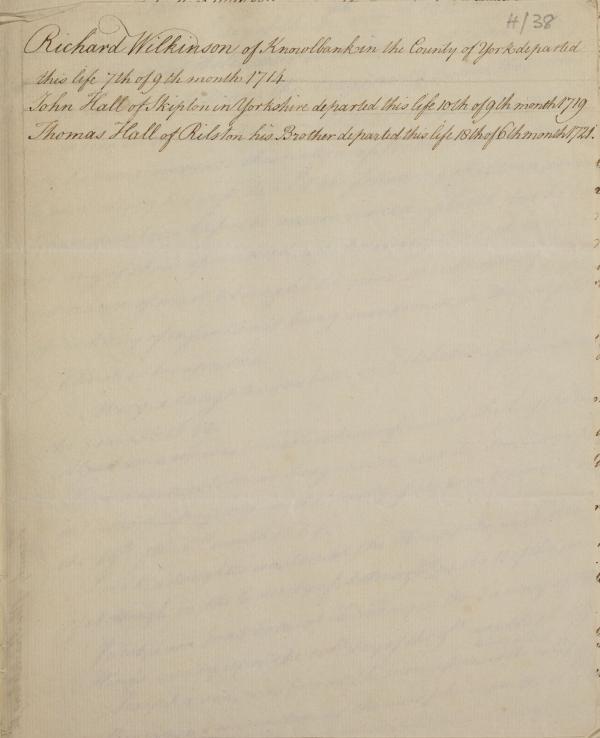 H/38
Richard Wilkinson of Knowlbank in the County of York departed
this life 7th of 9th month 1714
John Hall of Skipton in Yorkshire departed this life 10th of 9th month 1719
Thomas Hall of Rilston his Brother departed this life 18th of 6th month 1721.